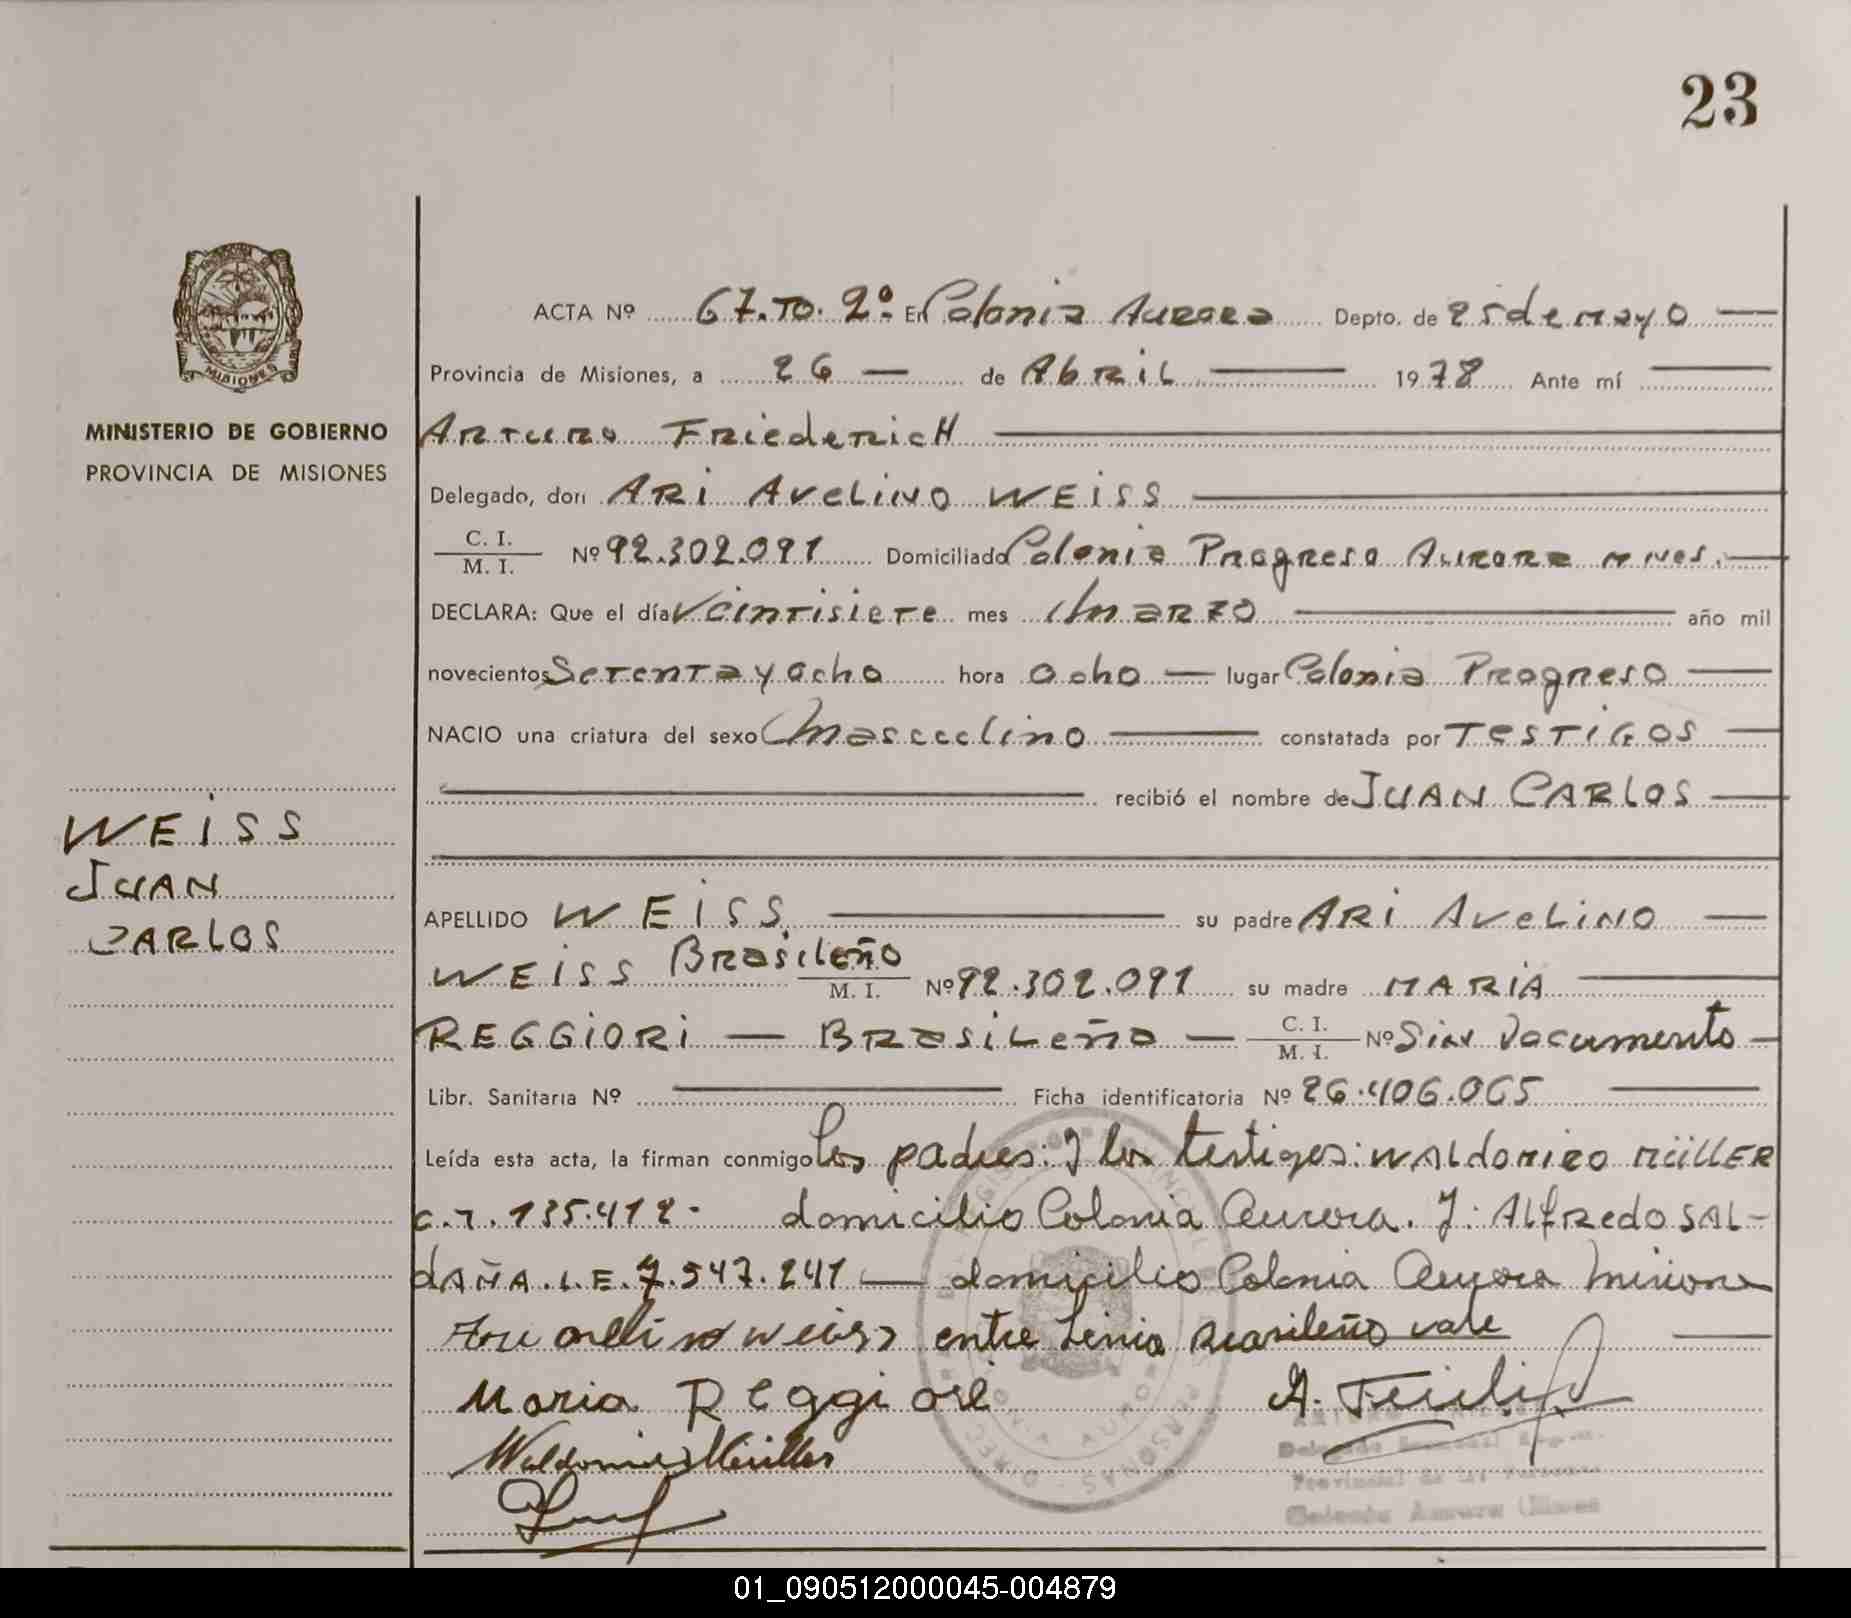 23
ACTA Nº 67. TO. 2º. En Colonia Aurora Depto. de 25 de Mayo
Provincia de Misiones, a 26 de Abril 1978 Ante mí
Arturo Friederich
MINISTERIO DE GOBIERNO
PROVINCIA DE MISIONES
Delegado, don Ari Avelino Weiss
C. I.
M. I. Nº 92.302.091 Domiciliado Colonia Progreso Aurora Mnes.
DECLARA: Que el día Veintisiete mes Marzo año mil
novecientos Setenta y Ocho hora Ocho lugar Colonia Progreso
NACIO una criatura del sexo Masculino constatada por Testigos
recibió el nombre de JUAN CARLOS
WEISS
JUAN
CARLOS
APELLIDO WEISS. su padre ARI AVELINO
WEISS Brasileño
M. I. Nº 92.302.091 su madre MARIA
REGGIORI — Brasileña — C. I.
M. I. Nº Sin Documento
Libr. Sanitaria Nº Ficha identificatoria Nº 26.406.065
Leída esta acta, la firman conmigo los padres: y los testigos: WALDOMIRO MÜLLER
C.I. 135.412. domicilio Colonia Aurora. Y: ALFREDO SAL-
DAÑA. L.E. 7.547.241 — domicilio Colonia Aurora Misiones
weiss entre Linia Brasileño vale
Maria Reggiori
MISIONES
01_090512000045-004879